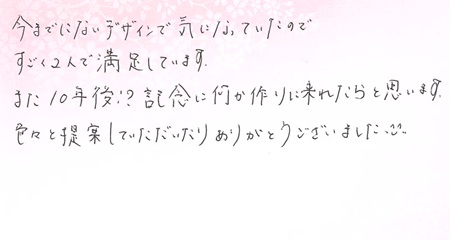 今までにないデザインで気になっていたので
すごく2人で満足しています。
また10年後!?記念に何か作りに来れたらと思います。
色々と提案していただいたりありがとうございました